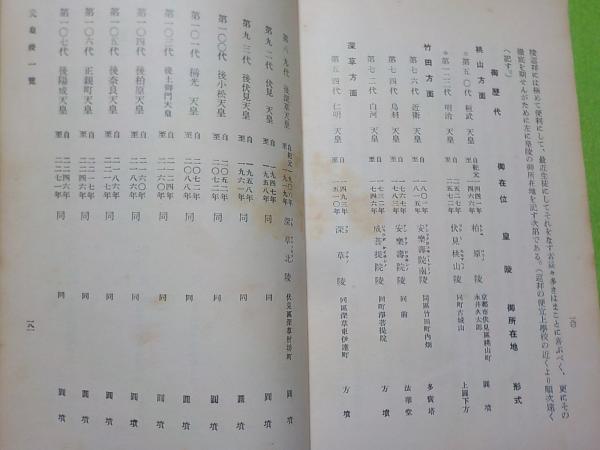 陵巡拜には極めて便利にして、最近生徒にしてそれをなす者益々多きはまことに喜ぶべく、更にその
徹底を期せんがために左に皇陵の御所在地を記す次第である。(巡拜の便宜上學校の近くより順次遠く
へ記す。)
御歷代 御在位 皇陵 御所在地 形式
桃山方面
第五〇代 桓武天皇 自紀元一四四一年 至 柏原陵 京都市伏見區桃山町永井久太郎 圓墳
第一二二代 明治天皇 自二五二七年 至二五七二年 伏見桃山陵 同町古城山 上圓下方
竹田方面
第七六代 近衞天皇 自一八〇一年 至一八一五年 安樂壽院南陵 同區竹田町內畑 多寶塔
第七四代 鳥羽天皇 自一七六七年 至一七八三年 安樂壽院陵 同前 法華堂
第七二代 白河天皇 自 至一七四六年 成菩提院陵 同町淨菩提院 方墳
深草方面
第五四代 仁明天皇 自一四九三年 至一五一〇年 深草陵 同區深草東伊達町 方墳
一八〇
第八九代 後深草天皇 自紀元一九〇六年 至一九一九年 深草北陵 伏見區深草坊町 圓墳
第九二代 伏見天皇 自一九四七年 至一九五八年 同 同 圓墳
第九三代 後伏見天皇 自一九五八年 至一九六一年 同 同 圓墳
第一〇〇代 後小松天皇 自二〇五二年 至二〇七二年 同 同 圓墳
第一〇一代 稱光天皇 自二〇七二年 至二〇八八年 同 同 圓墳
第一〇三代 後土御門天皇 自二一二四年 至二一六〇年 同 同 圓墳
第一〇四代 後柏原天皇 自二一六〇年 至二一八六年 同 同 圓墳
第一〇五代 後奈良天皇 自二一八六年 至二二一七年 同 同 圓墳
第一〇六代 正親町天皇 自二二一七年 至二二四六年 同 同 圓墳
第一〇七代 後陽成天皇 自二二四六年 至二二七一年 同 同 圓墳
一覽
一八一